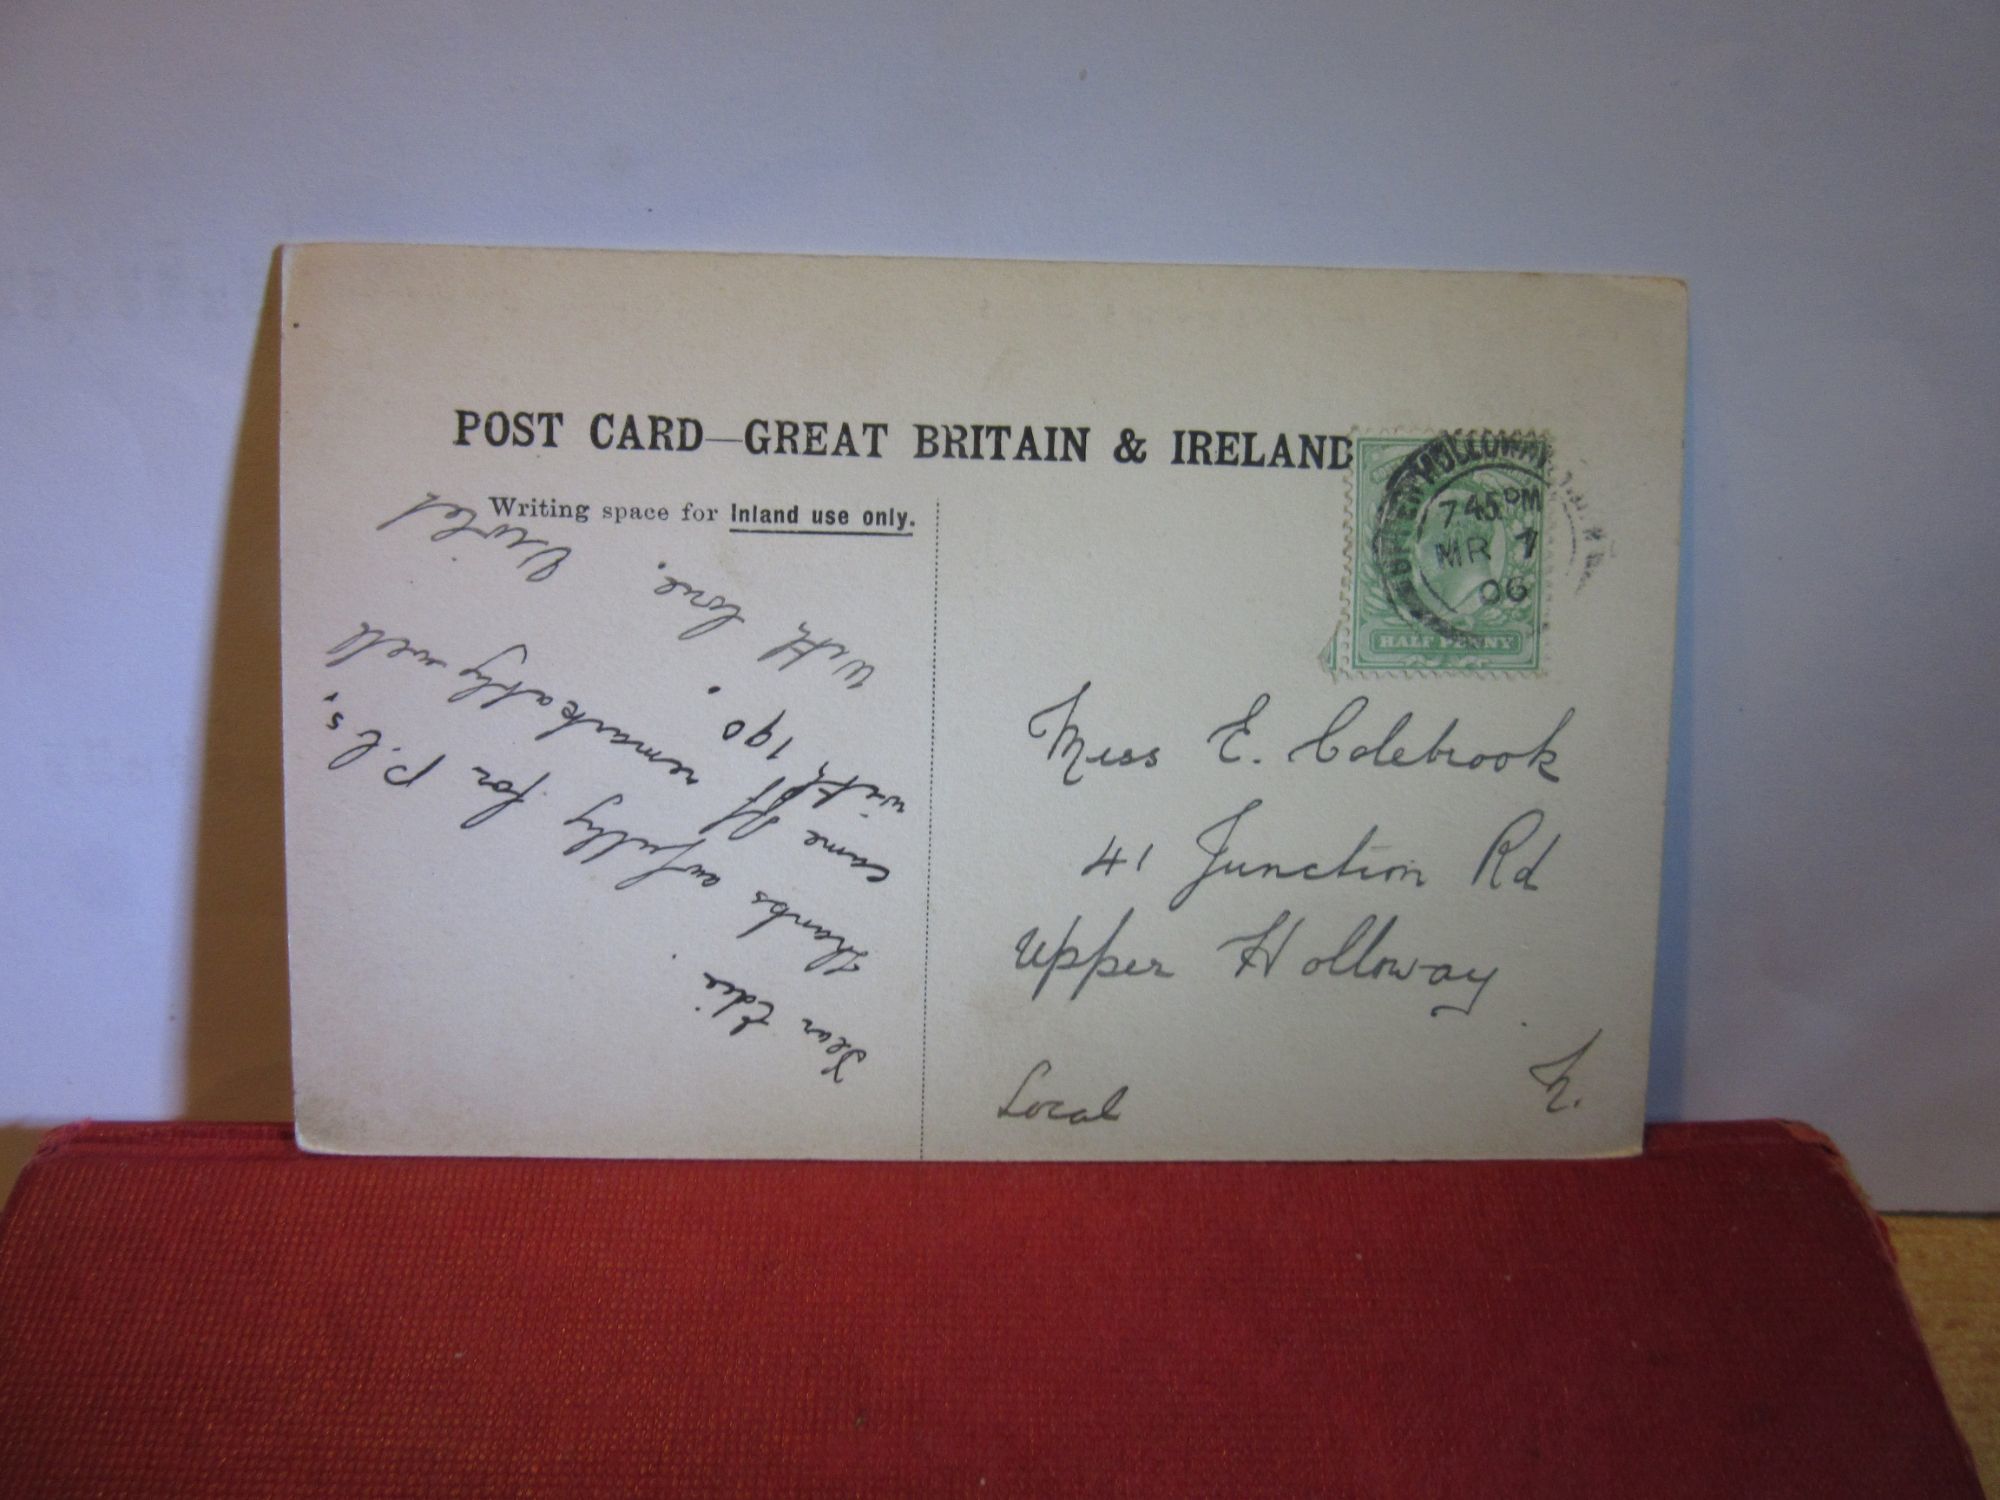 POST CARD—GREAT BRITAIN & IRELAND
Writing space for Inland use only.
UPPER HOLLOWAY
7 45 PM
MR 7
06
HALF PENNY
Miss E. Colebrook
41 Junction Rd
Upper Holloway
N.
Local
Dear Edie
Thanks awfully for P.C's,
came off remarkably well
with 190.
With love,
Violet